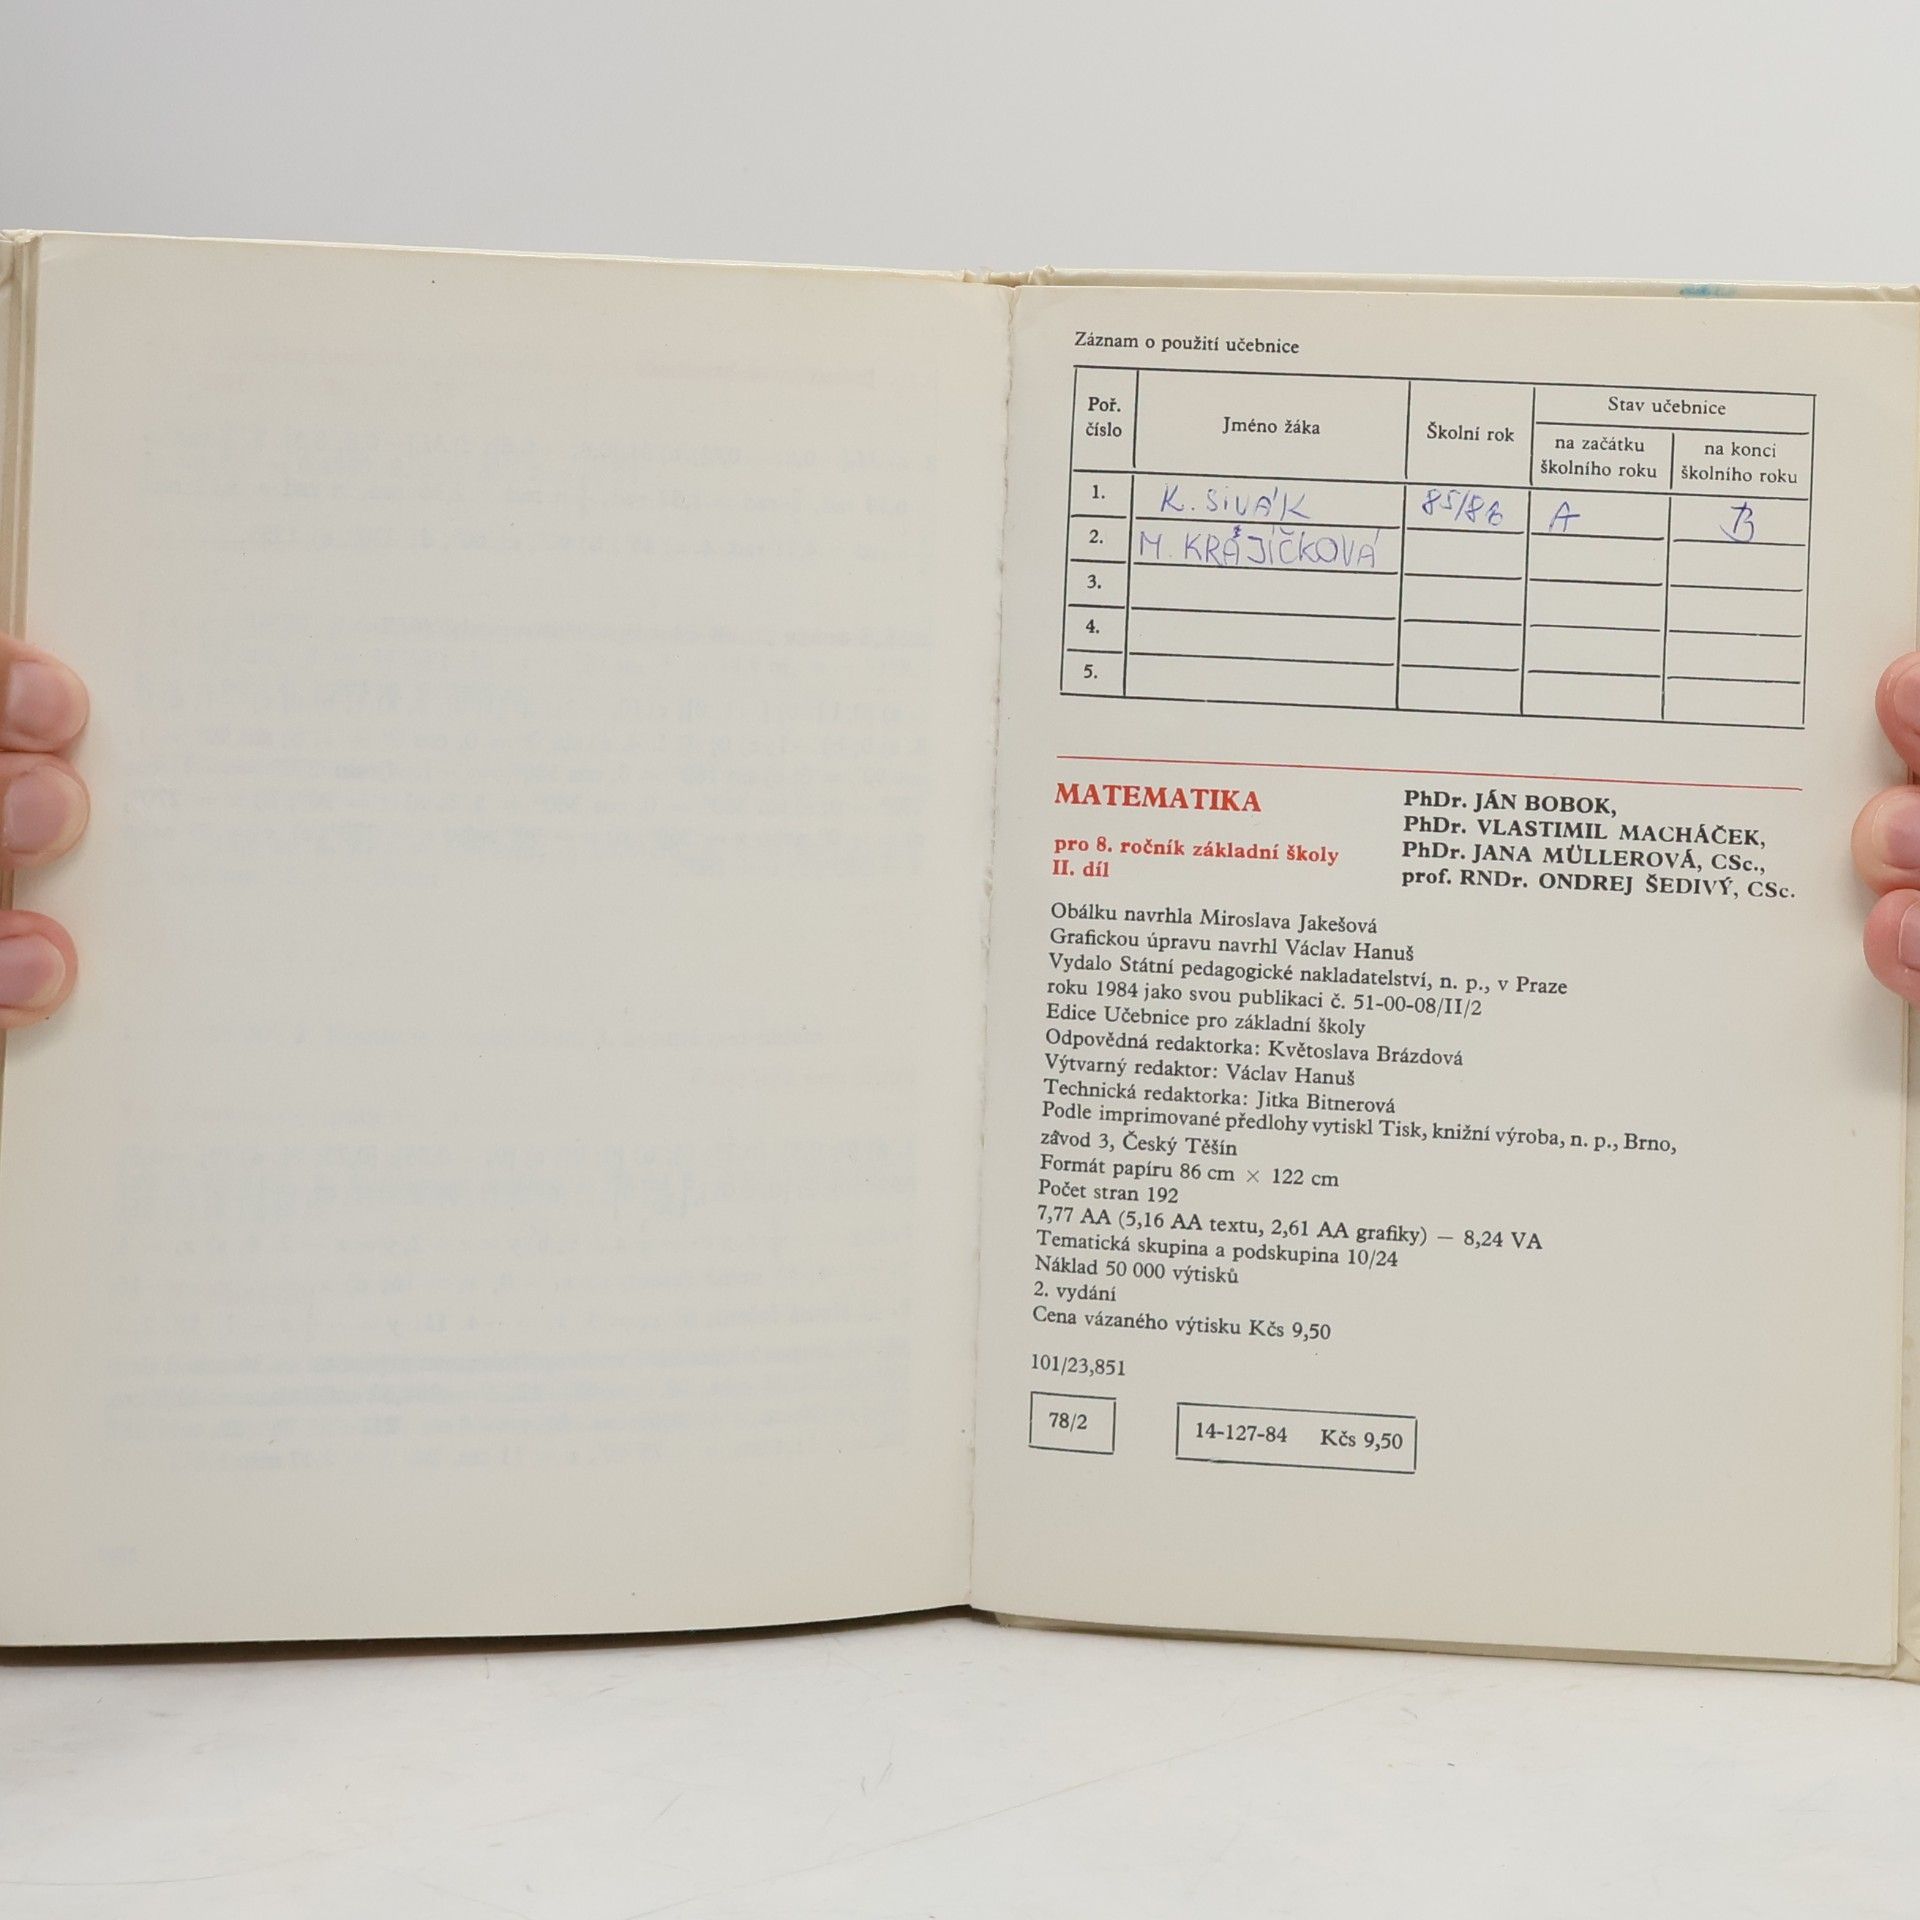 Záznam o použití učebnice
Poř. číslo
Jméno žáka
Školní rok
Stav učebnice
na začátku školního roku
na konci školního roku
1. K. SIVÁK 85/86 A B
2. M. KRÁJÍČKOVÁ
3.
4.
5.
MATEMATIKA
pro 8. ročník základní školy
II. díl
PhDr. JÁN BOBOK,
PhDr. VLASTIMIL MACHÁČEK,
PhDr. JANA MÜLLEROVÁ, CSc.,
prof. RNDr. ONDREJ ŠEDIVÝ, CSc.
Obálku navrhla Miroslava Jakešová
Grafickou úpravu navrhl Václav Hanuš
Vydalo Státní pedagogické nakladatelství, n. p., v Praze
roku 1984 jako svou publikaci č. 51-00-08/II/2
Edice Učebnice pro základní školy
Odpovědná redaktorka: Květoslava Brázdová
Výtvarný redaktor: Václav Hanuš
Technická redaktorka: Jitka Bitnerová
Podle imprimované předlohy vytiskl Tisk, knižní výroba, n. p., Brno,
závod 3, Český Těšín
Formát papíru 86 cm × 122 cm
Počet stran 192
7,77 AA (5,16 AA textu, 2,61 AA grafiky) — 8,24 VA
Tematická skupina a podskupina 10/24
Náklad 50 000 výtisků
2. vydání
Cena vázaného výtisku Kčs 9,50
101/23,851
78/2
14-127-84 Kčs 9,50